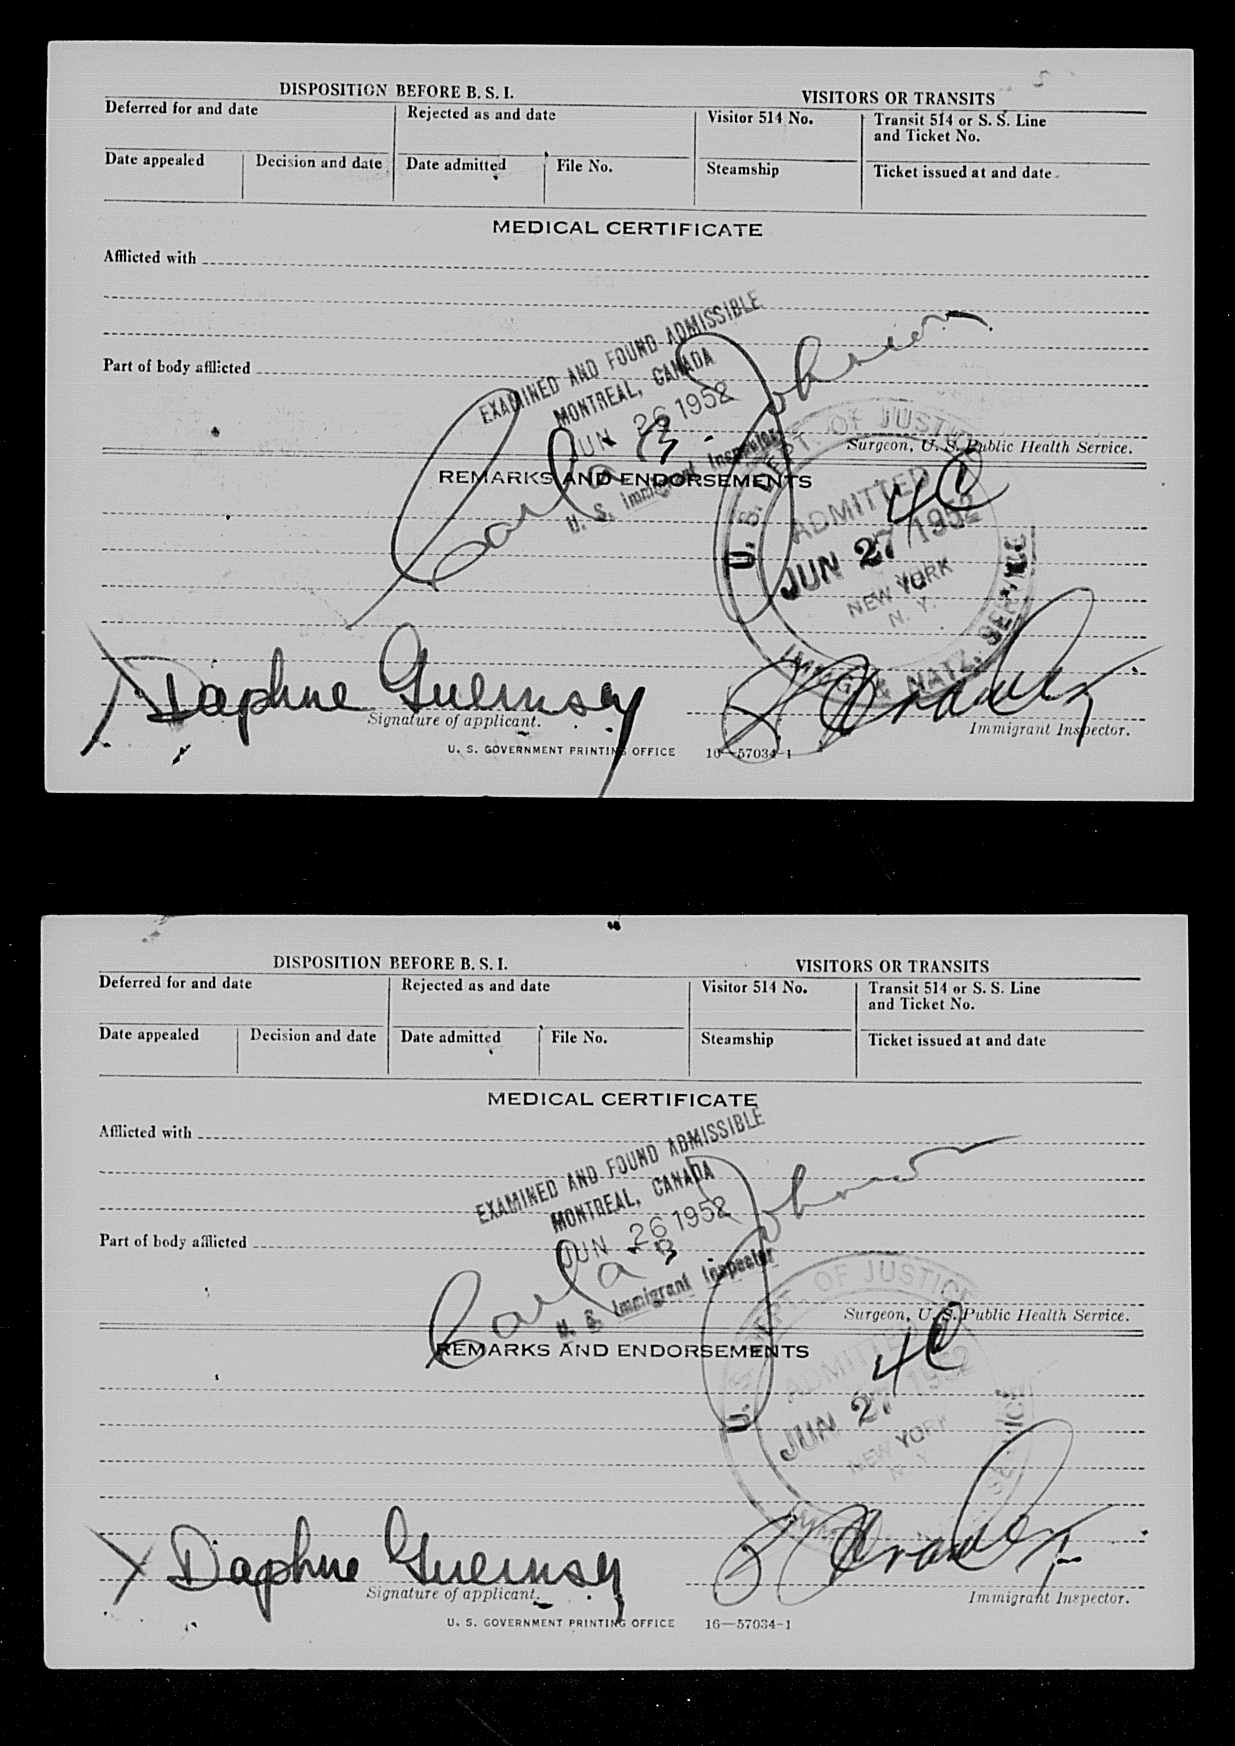 DISPOSITION BEFORE B. S. I. VISITORS OR TRANSITS
Deferred for and date Rejected as and date Visitor 514 No. Transit 514 or S. S. Line
and Ticket No.
Date appealed Decision and date Date admitted File No. Steamship Ticket issued at and date
MEDICAL CERTIFICATE
Afflicted with
EXAMINED AND FOUND ADMISSIBLE
MONTREAL, CANADA
JUN 26 1952
U. S. Immigrant Inspector
Part of body afflicted
Carla B. Johnson
Surgeon, U. S. Public Health Service.
REMARKS AND ENDORSEMENTS
U. S. DEPT. OF JUSTICE
ADMITTED
JUN 27 1952
NEW YORK
N. Y.
IMMIG. & NATZ. SERVICE
Daphne Guernsey
Signature of applicant. Immigrant Inspector.
U. S. GOVERNMENT PRINTING OFFICE 16—57034-1
DISPOSITION BEFORE B. S. I. VISITORS OR TRANSITS
Deferred for and date Rejected as and date Visitor 514 No. Transit 514 or S. S. Line
and Ticket No.
Date appealed Decision and date Date admitted File No. Steamship Ticket issued at and date
MEDICAL CERTIFICATE
Afflicted with
EXAMINED AND FOUND ADMISSIBLE
MONTREAL, CANADA
JUN 26 1952
U. S. Immigrant Inspector
Part of body afflicted
Carla B Johnson
Surgeon, U. S. Public Health Service.
REMARKS AND ENDORSEMENTS
U. S. DEPT. OF JUSTICE
ADMITTED
JUN 27 1952
NEW YORK
N. Y.
X Daphne Guernsey
Signature of applicant. Immigrant Inspector.
U. S. GOVERNMENT PRINTING OFFICE 16—57034-1